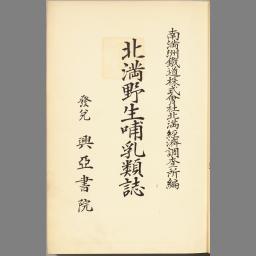 南滿洲鐵道株式會社北滿經濟調査所編
北満野生哺乳類誌
發兌 興亞書院